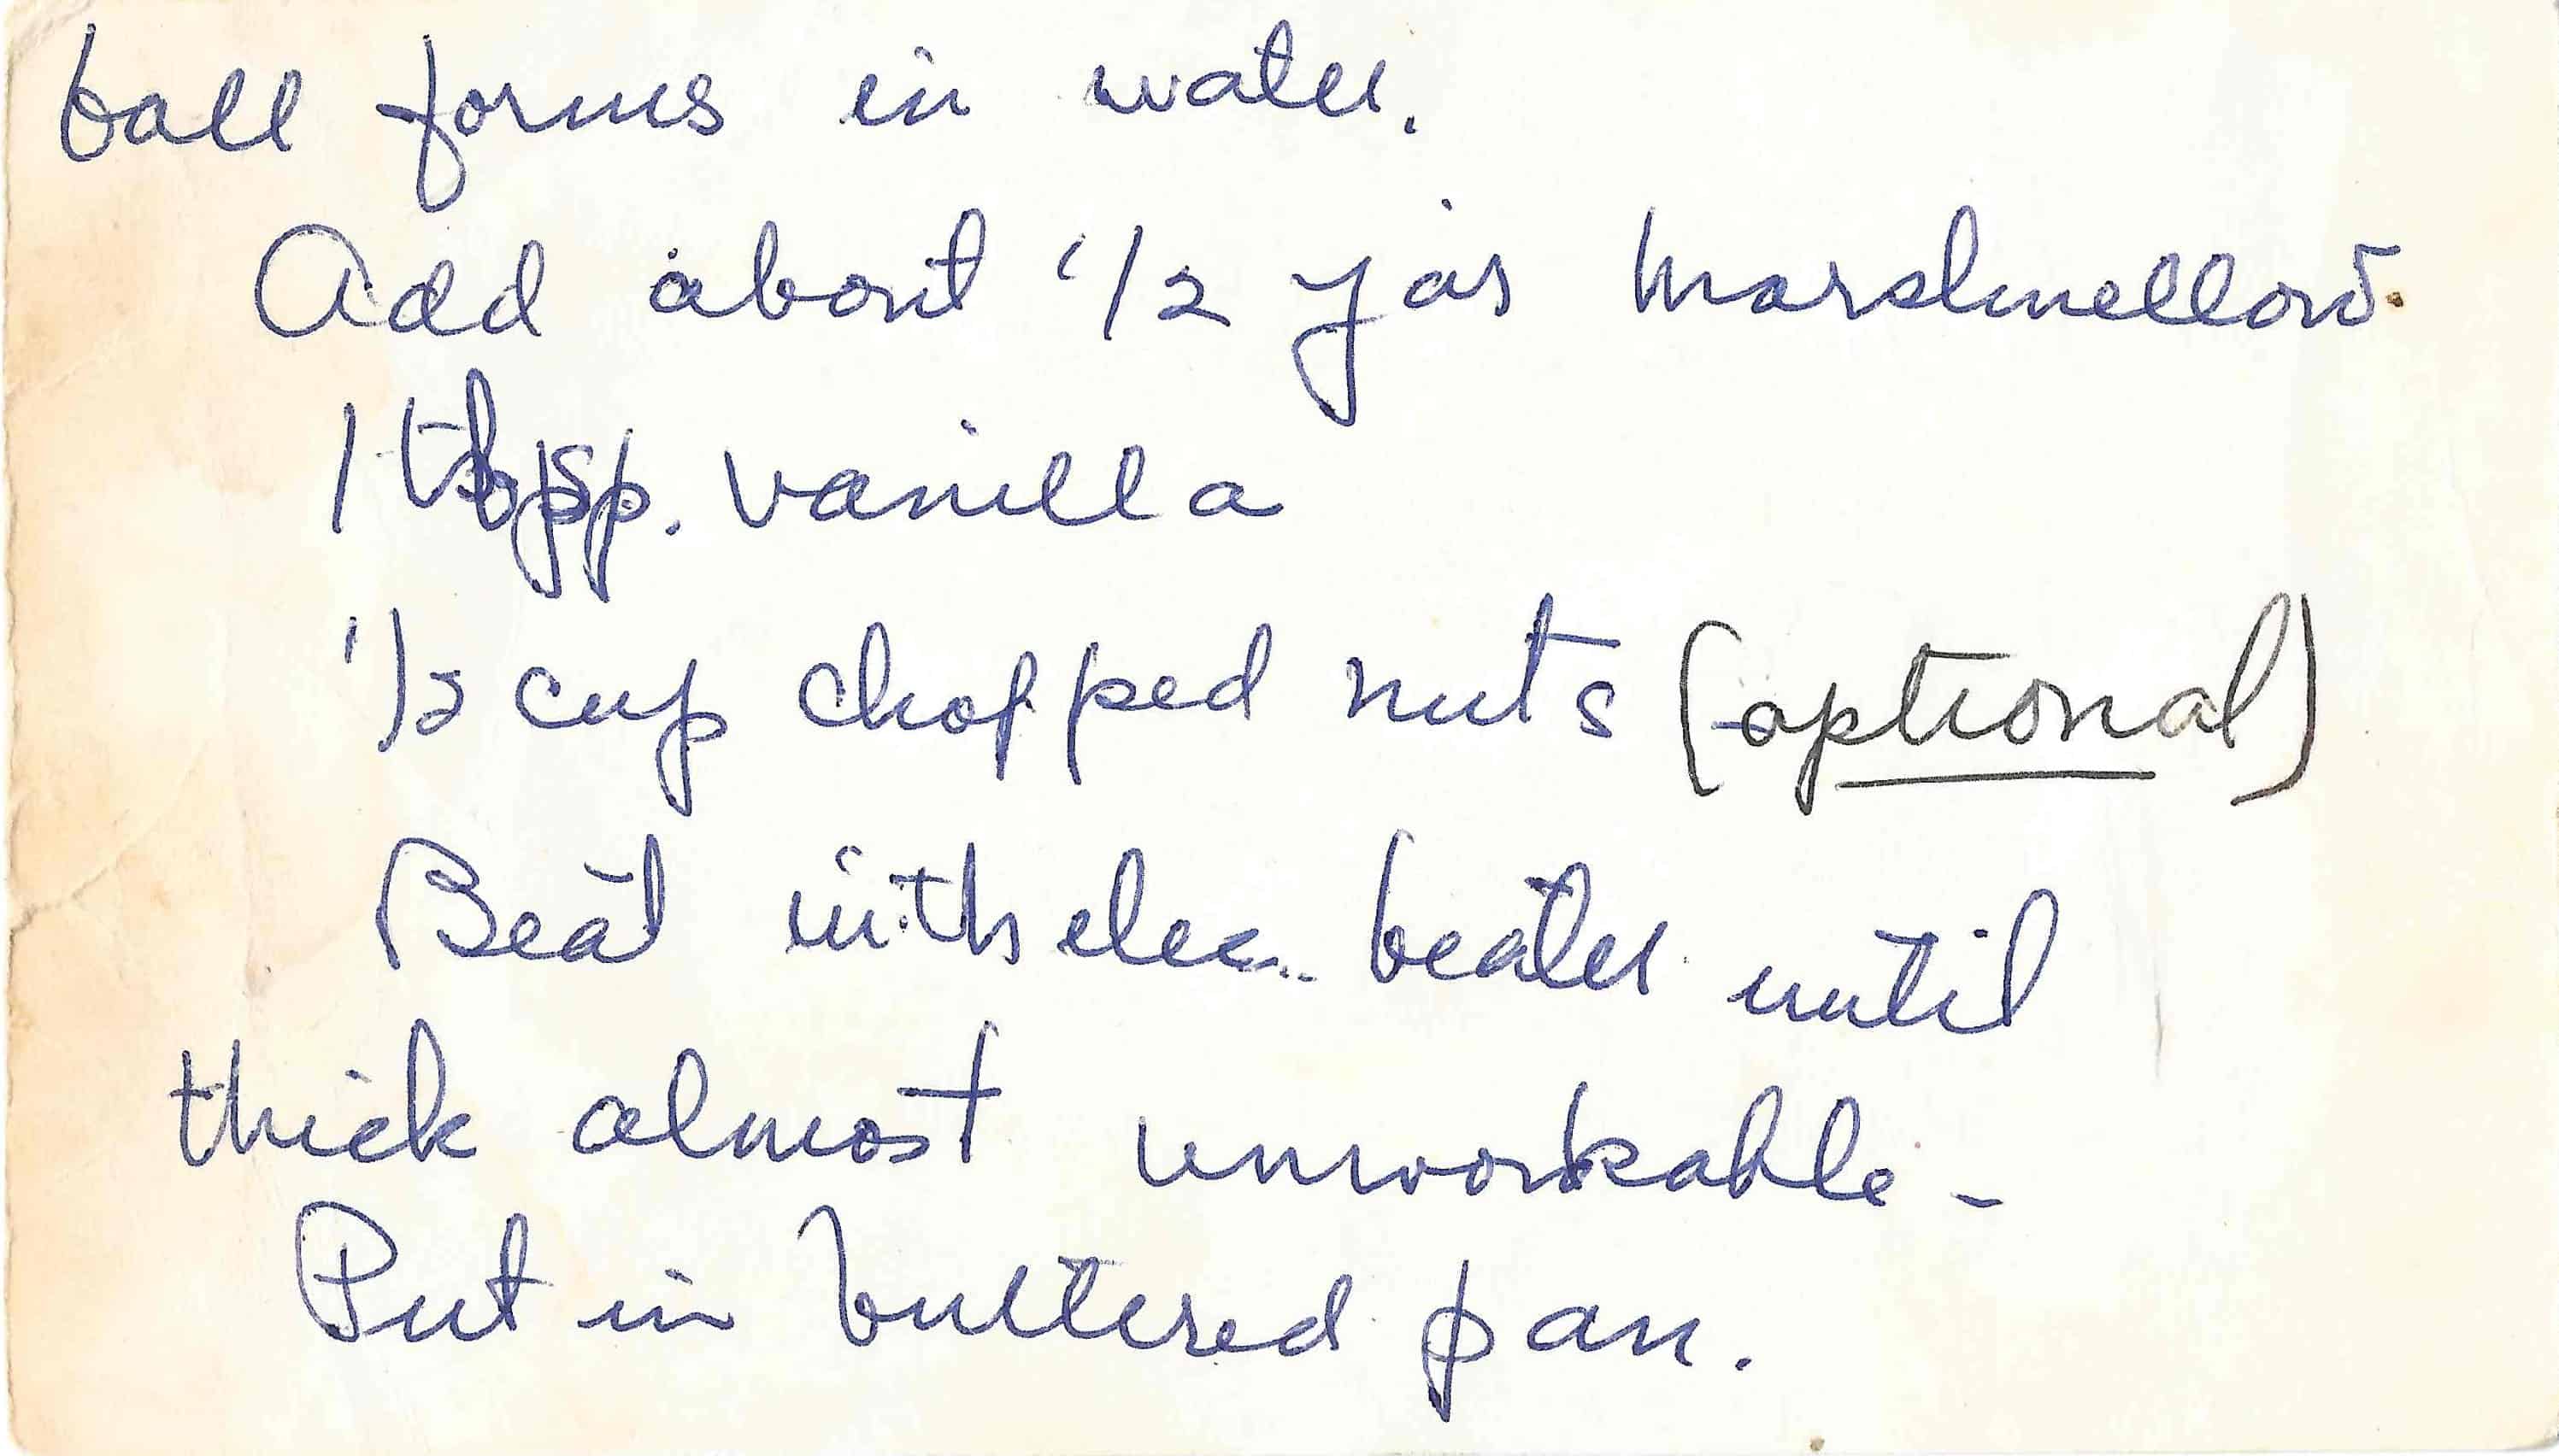 ball forms in water.
Add about 1/2 jar marshmellow.
1 vanilla
1/2 cup chopped nuts (optional)
Beat with elec. beater until
thick almost unworkable -
Put in buttered pan.